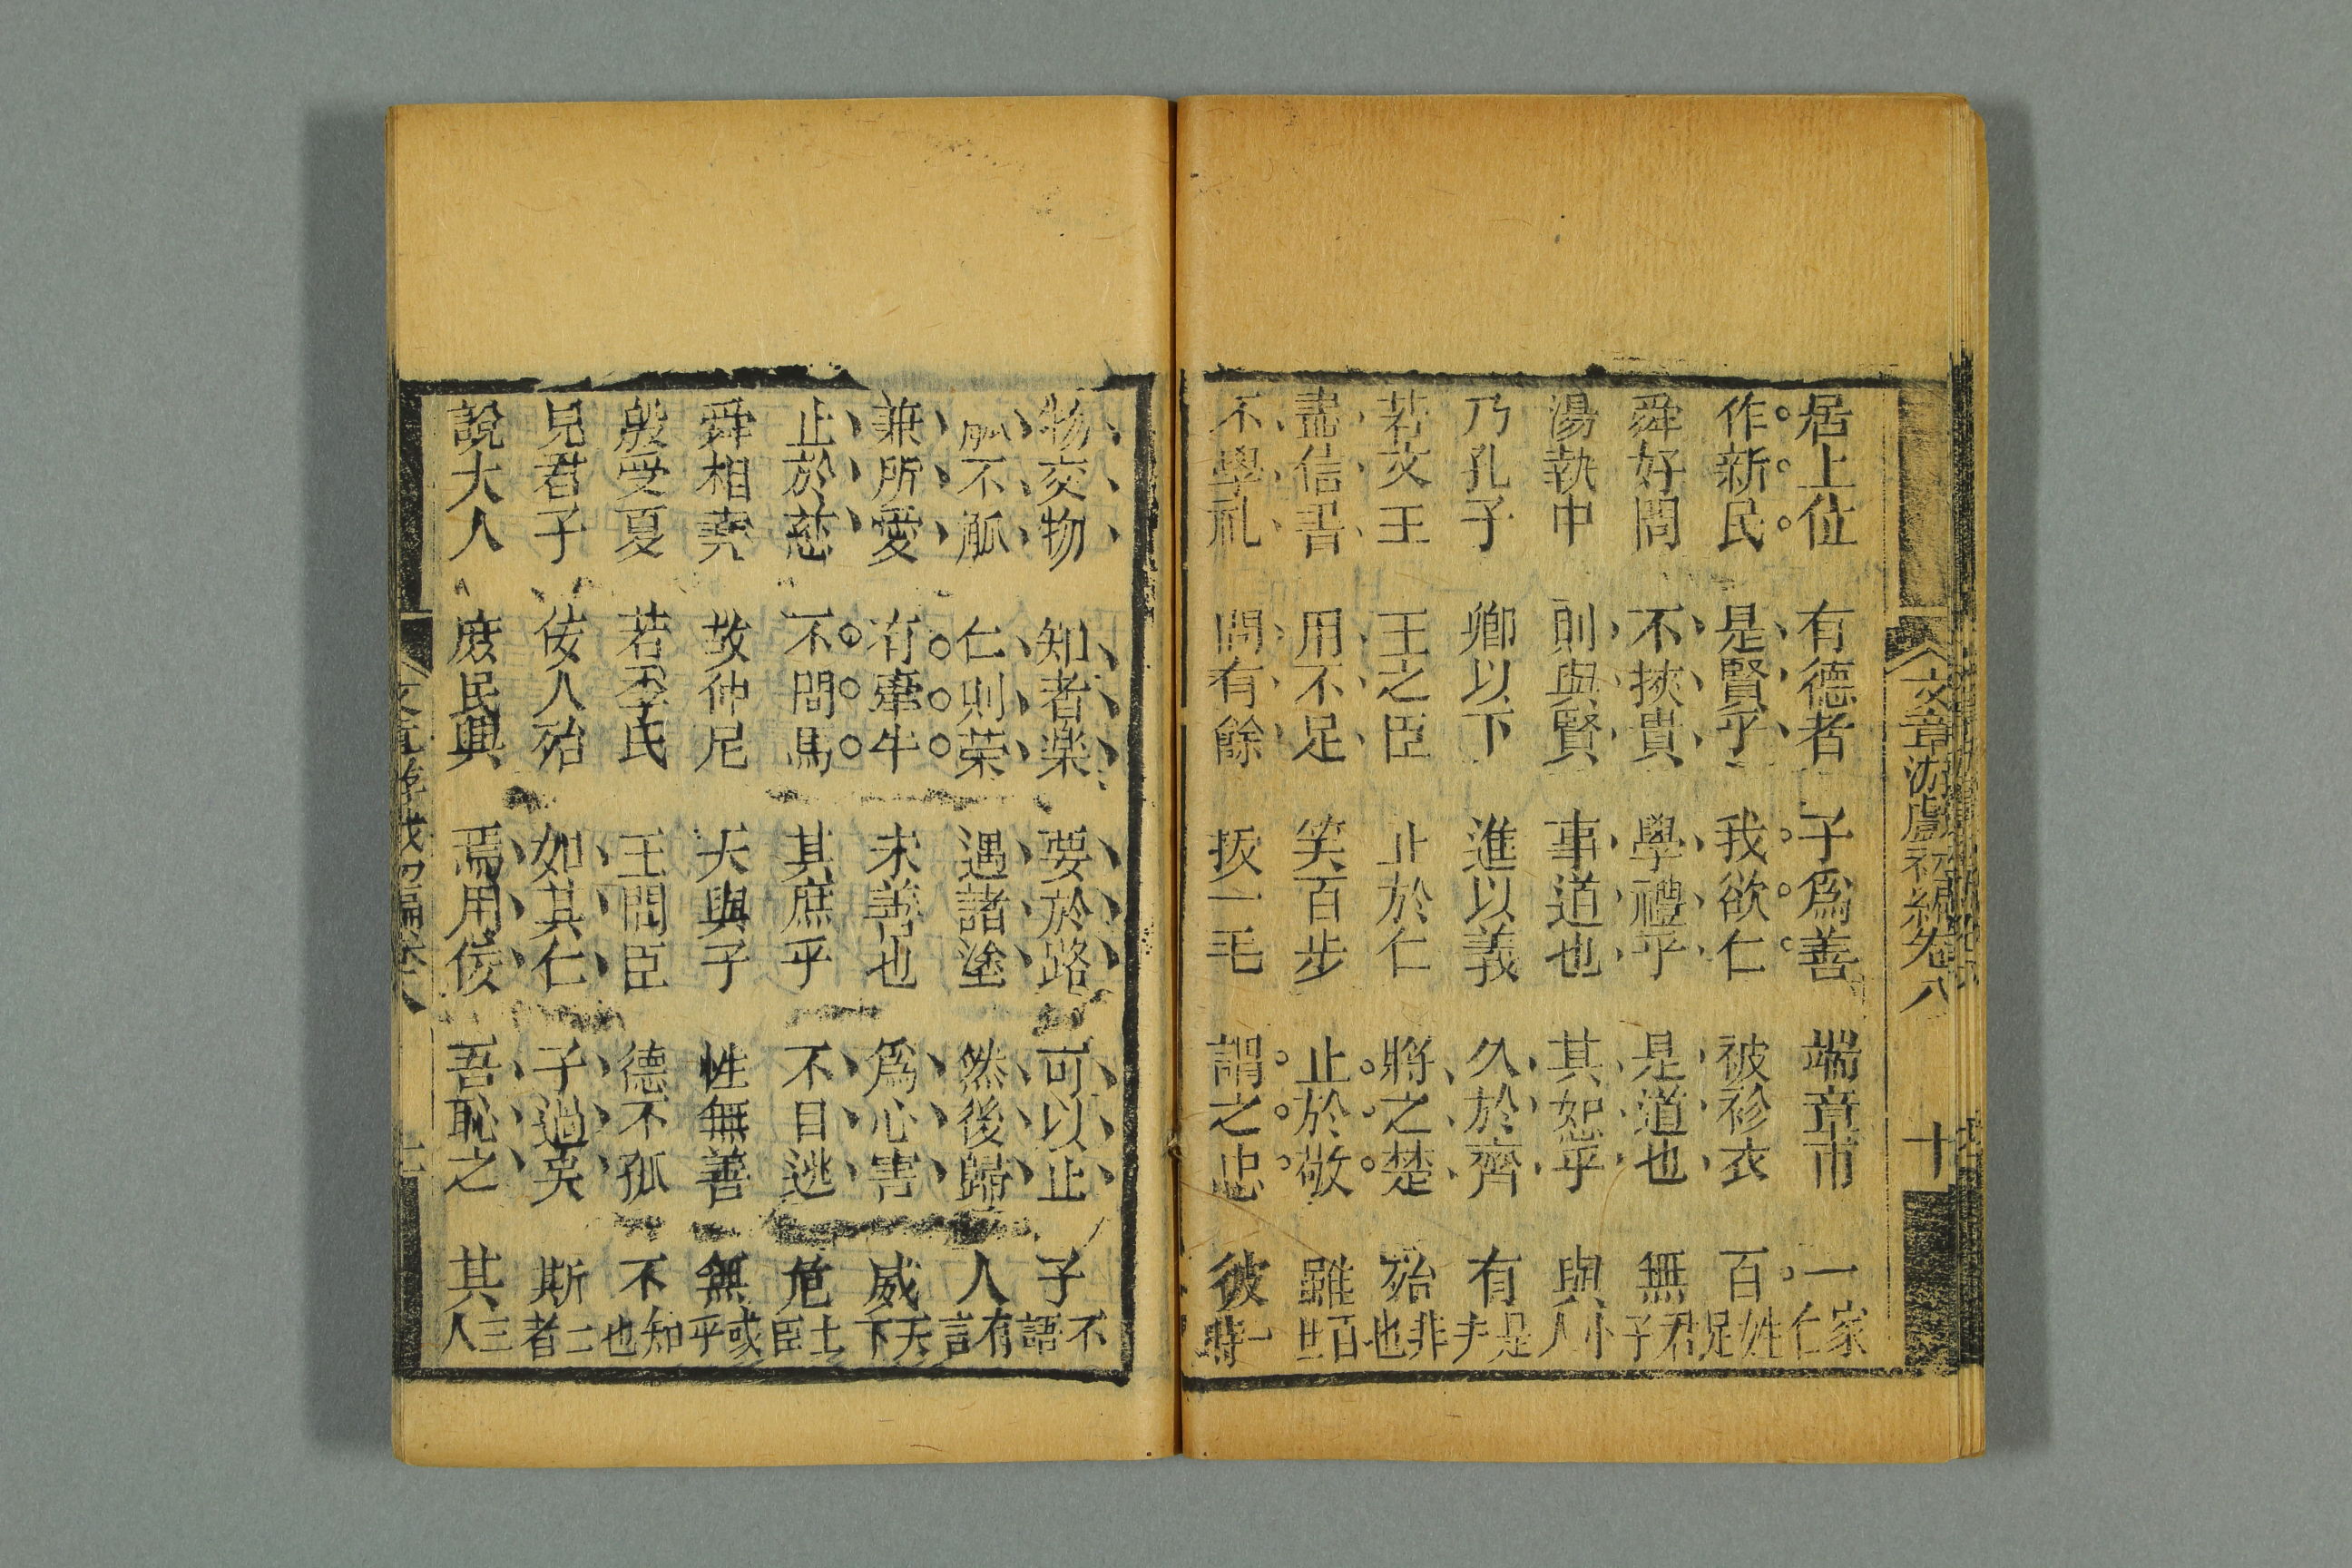 文章游戲初編卷八 十
居上位 有德者 子爲善 端章甫 一家仁
作新民 是賢乎 我欲仁 被袗衣 百姓足
舜好問 不挾貴 學禮乎 是道也 無君子
湯執中 則與賢 事道也 其恕乎 與小人
乃孔子 卿以下 進以義 久於齊 有是夫
若文王 王之臣 止於仁 將之楚 殆非也
盡信書 用不足 笑百步 止於敬 雖百世
不學礼 問有餘 拔一毛 謂之忠 彼一時
物交物 知者楽 要於路 可以止 子不語
觚不觚 仁則荣 遇諸塗 然後歸 人有言
兼所愛 有牽牛 未善也 爲心害 威天下
止於慈 不問馬 其庶乎 不目逃 危士臣
舜相堯 故仲尼 天與子 性無善 無或乎
殷受夏 若季氏 王問臣 德不孤 不知也
見君子 佞人殆 如其仁 子過矣 斯二者
說大人 庶民興 焉用佞 吾恥之 其三人